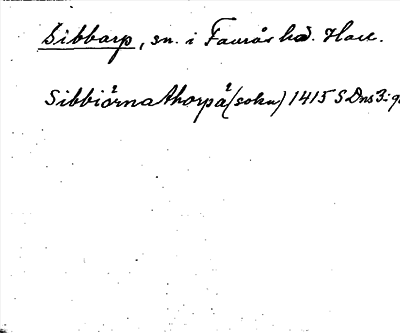 Sibbarp, sn. i Faurås hd. Hall.
Sibbiörnathorpå (sokn) 1415 SDns 3: 9